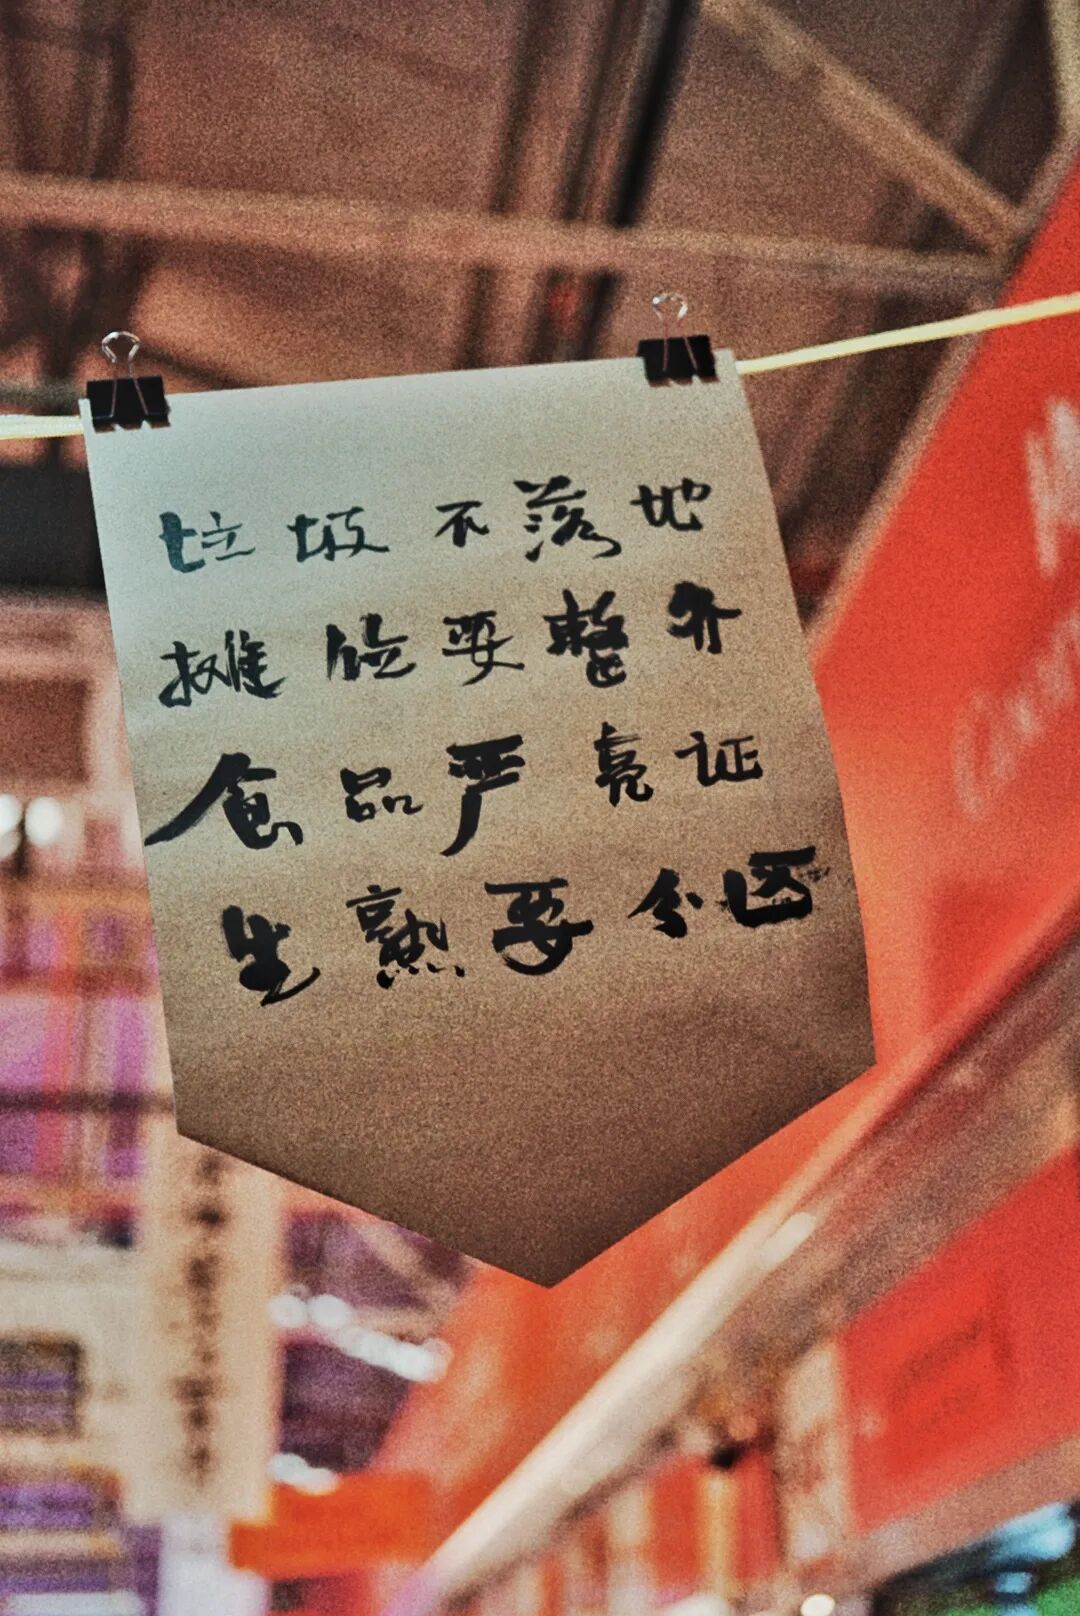 垃圾不落地
摊位要整齐
食品严亮证
生熟要分区